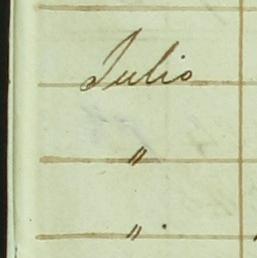 Julio
"
"